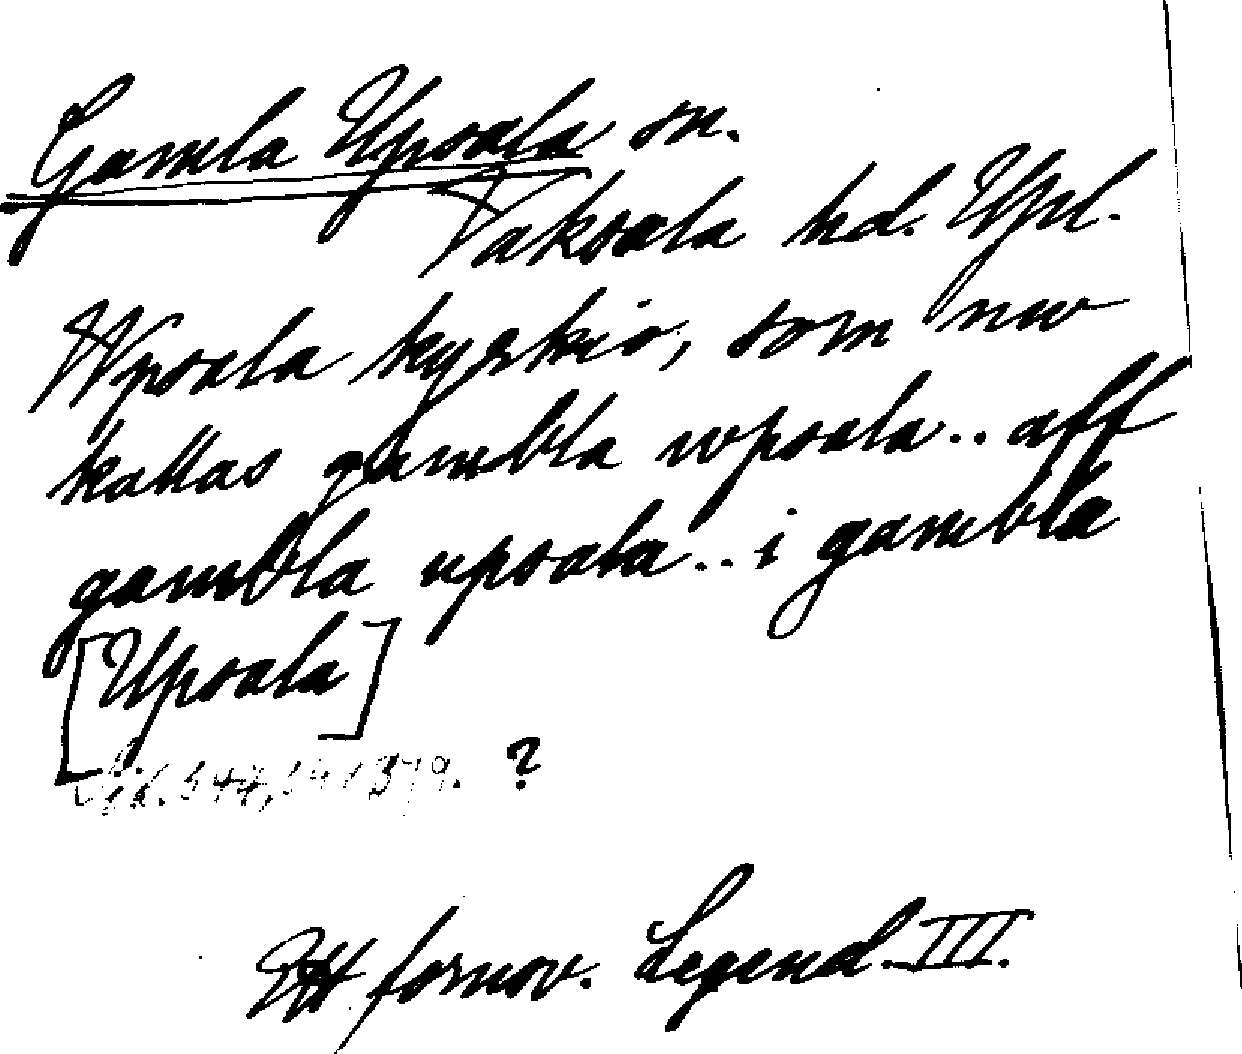 Gamla Upsala sn.
Vaksala hd. Upl.
Wpsala kyrkio, som nw
kallas gambla wpsala.. aff
gambla upsala.. i gambla
[Upsala]
?
fornsv. Legend. III.